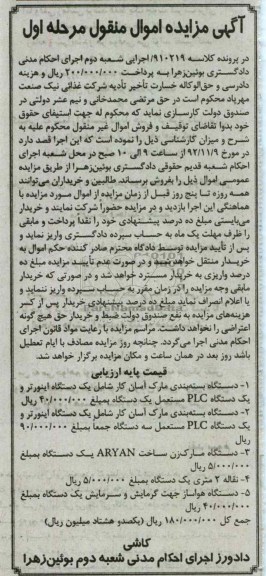 آگهی مزایده اموال منقول مرحله اول
در پرونده کلاسه ۹۱۰۲۱۹/اجرایی شعبه دوم اجرای احکام مدنی
دادگستری بوئین‌زهرا به پرداخت ۲۰۰/۰۰۰/۰۰۰ ریال و هزینه
دادرسی و حق‌الوکاله خسارت تأخیر تأدیه شرکت غذائی نیک صنعت
مهرپاد محکوم است در حق مرتضی محمدخانی و نیم عشر دولتی در
صندوق دولت کارسازی نماید که محکوم له جهت استیفای حقوق
خود بدوا تقاضای توقیف و فروش اموال غیر منقول محکوم علیه به
شرح و میزان کارشناسی ذیل را نموده است که این اجرا قصد دارد
در مورخ ۹۲/۱۱/۹ از ساعت ۹ الی ۱۰ صبح در محل شعبه اجرای
احکام شعبه قدیم حقوقی دادگستری بوئین‌زهرا از طریق مزایده
عمومی اموال ذیل را بفروش برساند، طالبین و خریداران می‌توانند
همه روزه تا پنج روز قبل از زمان مزایده از اموال مورد مزایده با
هماهنگی این اجرا بازدید و در مزایده حضوراً شرکت نمایند و خریدار
می‌بایستی مبلغ ده درصد پیشنهادی خود را نقداً پرداخت و مابقی
را ظرف مهلت یک ماه به حساب سپرده دادگستری واریز نماید و
پس از تأیید مزایده توسط دادگاه محترم صادر کننده حکم اموال به
خریدار منتقل خواهد شد و در صورت عدم تأیید مزایده مبلغ ده
درصد واریزی به خریدار مسترد خواهد شد و در صورتی که خریدار
مابقی وجه مزایده را در زمان مقرر به حساب سپرده واریز ننماید و
یا اعلام انصراف نماید مبلغ ده درصد پیشنهادی خریدار پس از کسر
هزینه‌های مزایده به نفع صندوق دولت ضبط و خریدار حق هیچ گونه
اعتراضی را نخواهد داشت. مراسم مزایده با رعایت مواد قانون اجرای
احکام مدنی اجرا می‌گردد. چنانچه روز مزایده مصادف با ایام تعطیل
باشد روز بعد در همان ساعت و مکان مزایده برگزار خواهد شد.
قیمت پایه ارزیابی
۱- دستگاه بسته‌بندی مارک آسان کار شامل یک دستگاه اینورتر و
یک دستگاه PLC مستعمل یک دستگاه بمبلغ ۴۰/۰۰۰/۰۰۰ ریال
۲- دستگاه بسته‌بندی مارک آسان کار شامل یک دستگاه اینورتر و
یک دستگاه PLC مستعمل سه دستگاه جمعاً بمبلغ ۹۰/۰۰۰/۰۰۰
ریال
۳- دستگاه مارک‌زن ساخت ARYAN یک دستگاه بمبلغ
۵/۰۰۰/۰۰۰ ریال
۴- نقاله ۲ متری یک دستگاه بمبلغ ۵/۰۰۰/۰۰۰ ریال
۵- دستگاه هواساز جهت گرمایش و سرمایش یک دستگاه بمبلغ
۴۰/۰۰۰/۰۰۰ ریال
جمع کل ۱۸۰/۰۰۰/۰۰۰ ریال (یکصدو هشتاد میلیون ریال)
کاشی
دادورز اجرای احکام مدنی شعبه دوم بوئین‌زهرا